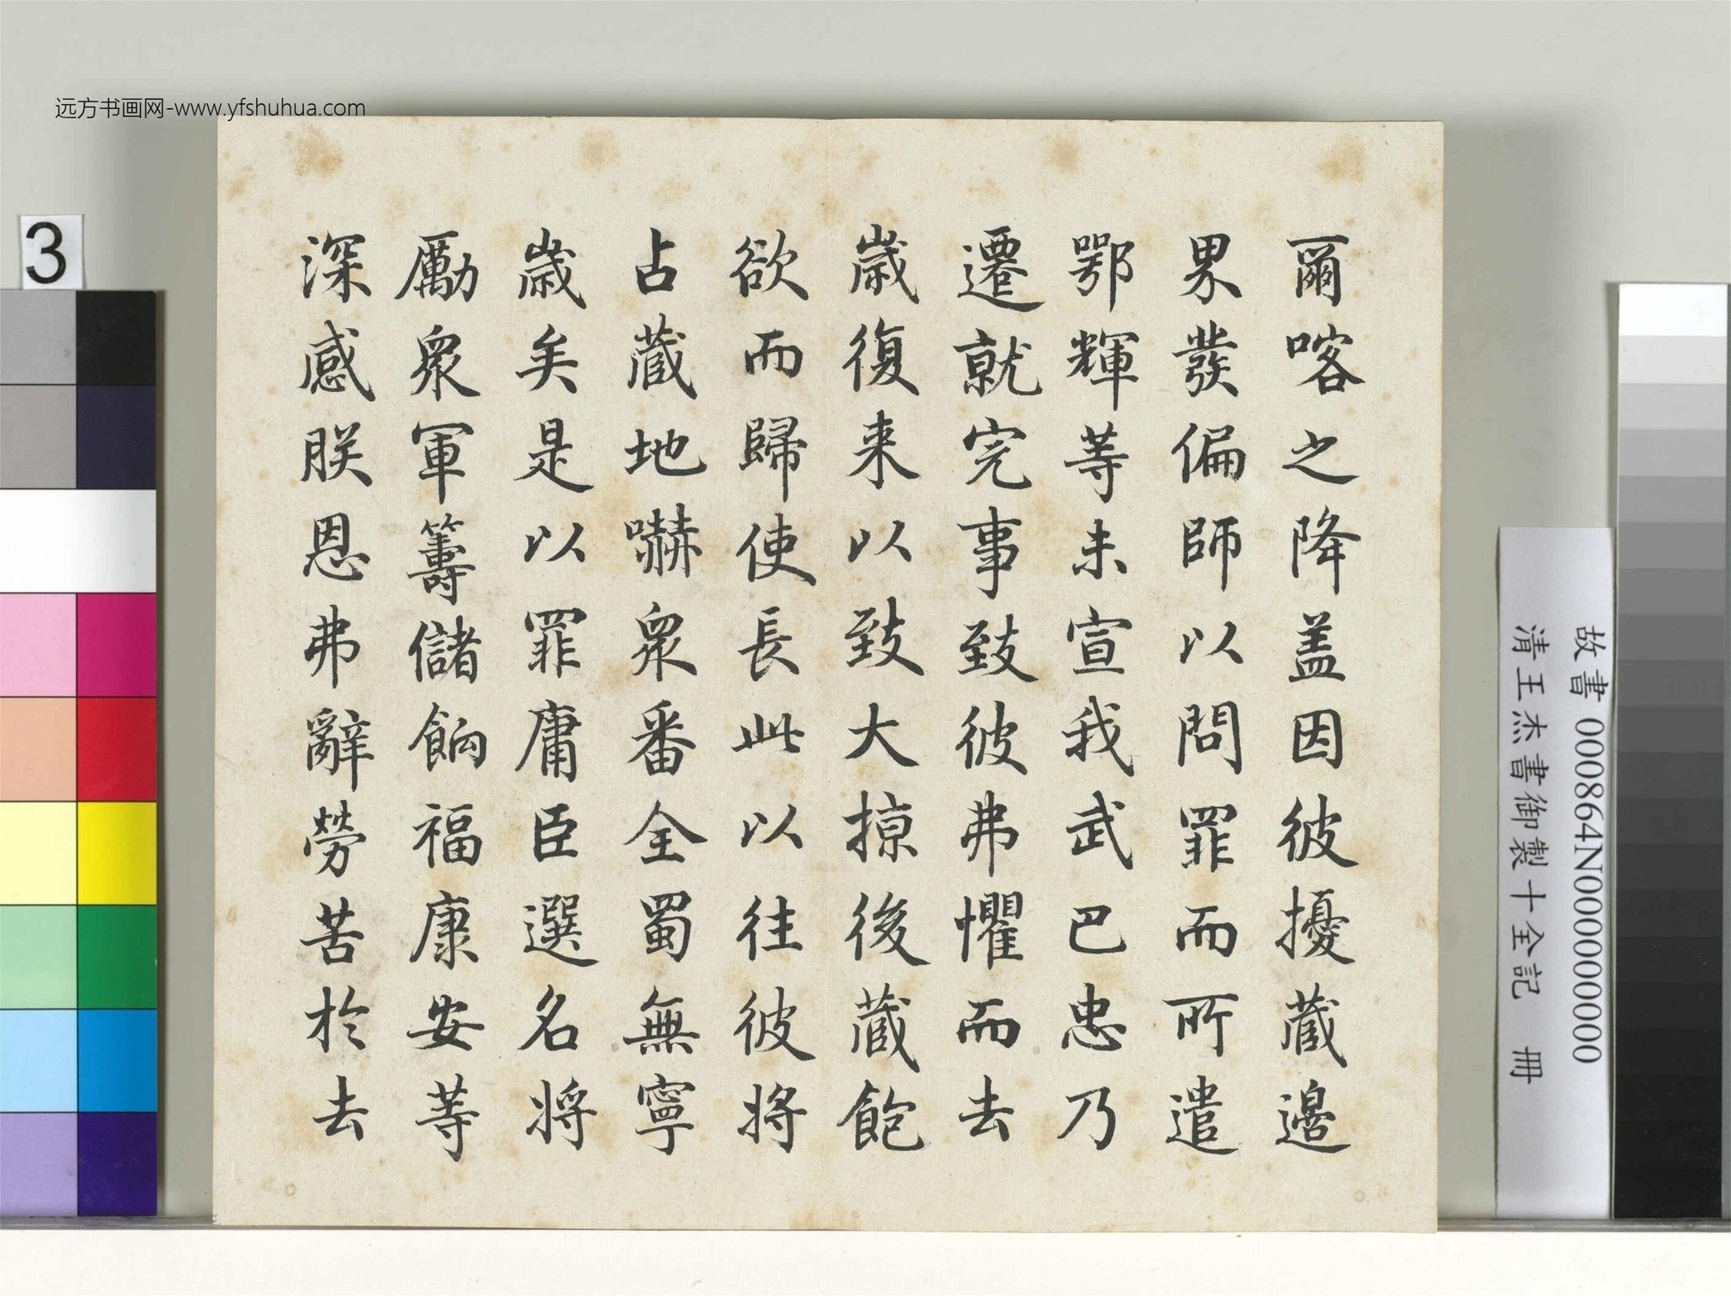 爾喀之降盖因彼擾藏邊
界發偏師以問罪而所遣
鄂輝等未宣我武巴忠乃
遷就完事致彼弗懼而去
歲復来以致大掠後藏飽
欲而歸使長此以往彼將
占藏地嚇衆番全蜀無寧
歲矣是以罪庸臣選名將
勵衆軍籌儲餉福康安等
深感朕恩弗辭勞苦於去
远方书画网-www.yfshuhua.com
3
故書 000864N000000000
清王杰書御製十全記 冊